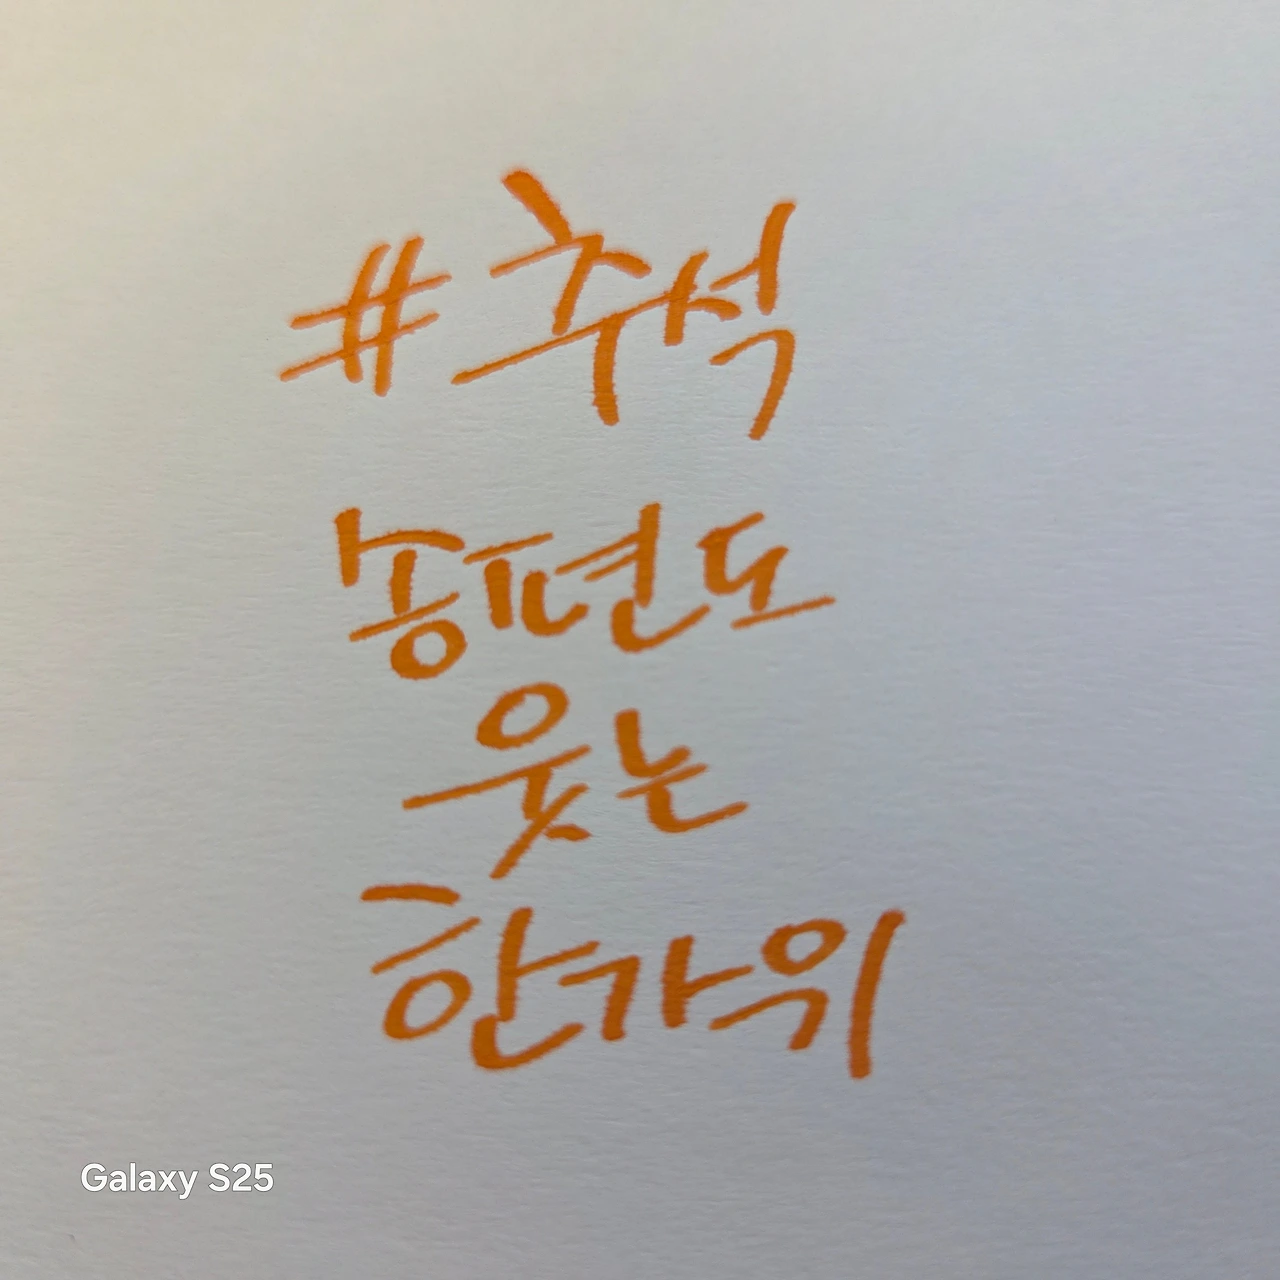 #추석
송편도
웃는
한가위
Galaxy S25